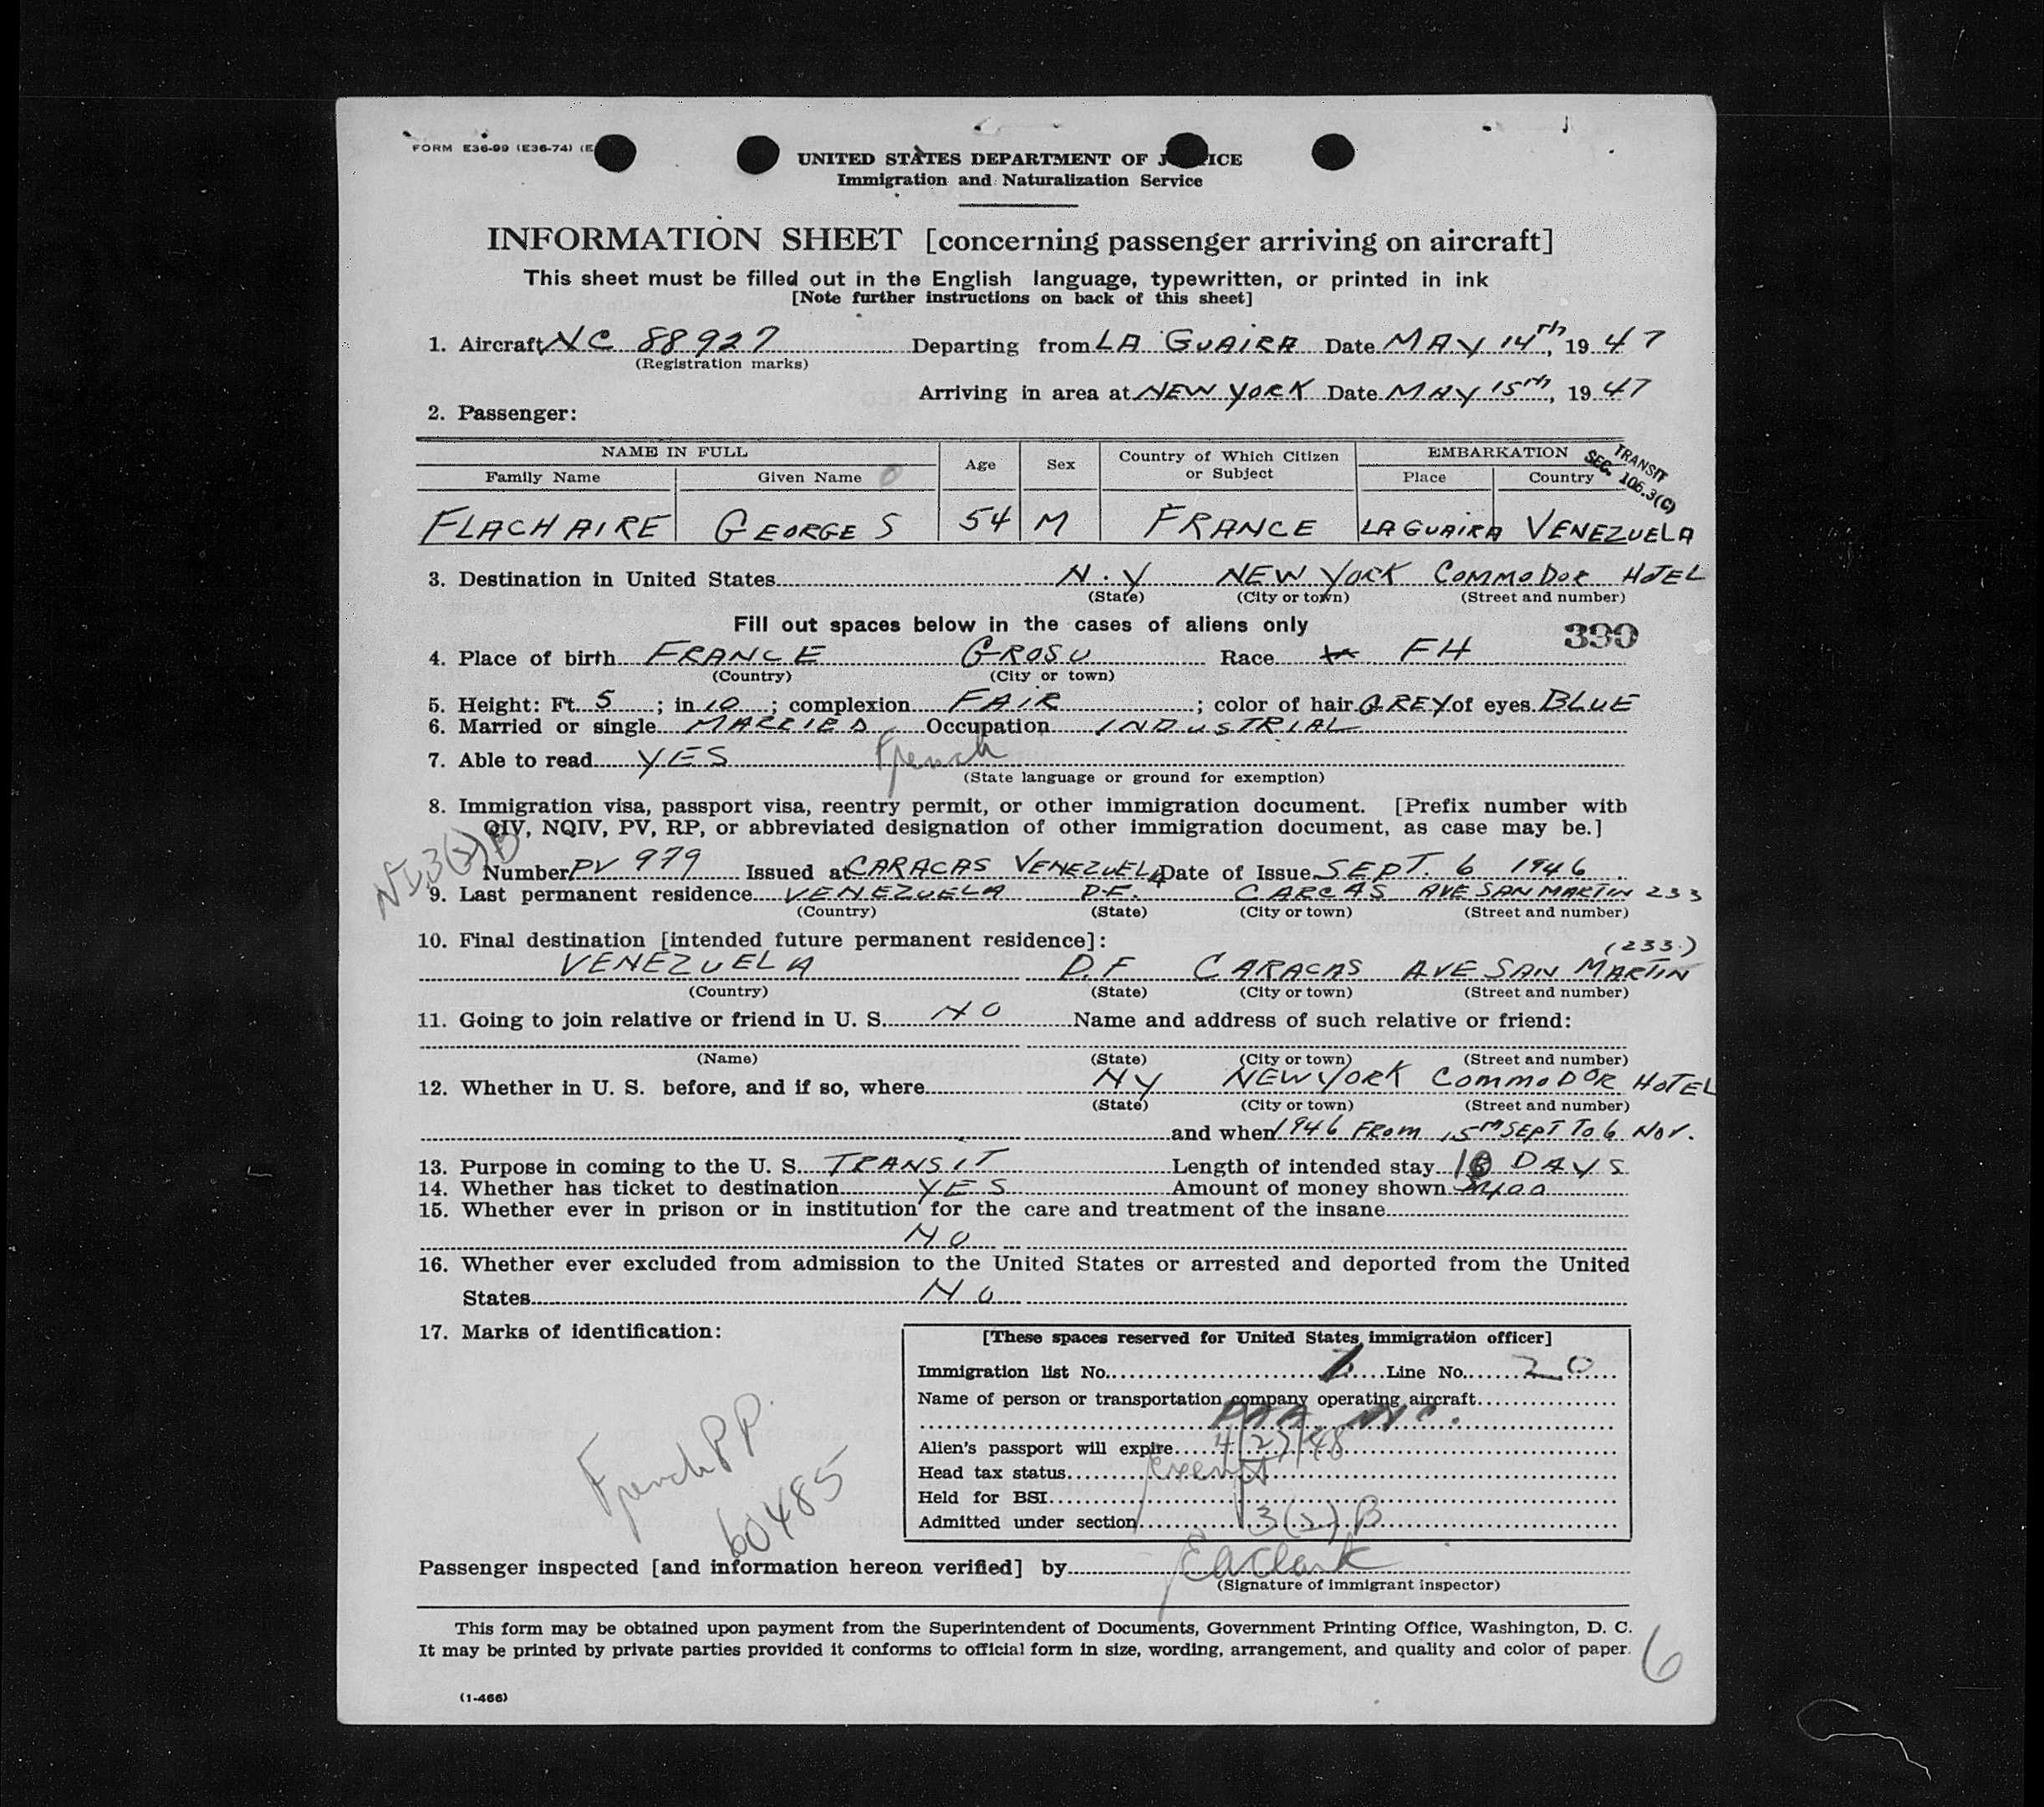 FORM E36-99 (E36-74) (E
UNITED STATES DEPARTMENT OF J ICE
Immigration and Naturalization Service
INFORMATION SHEET [concerning passenger arriving on aircraft]
This sheet must be filled out in the English language, typewritten, or printed in ink
[Note further instructions on back of this sheet]
1. Aircraft NC 88927 Departing from LA GUAIRA Date MAY 14TH, 1947
(Registration marks)
Arriving in area at NEW YORK Date MAY 15TH, 1947
2. Passenger:
NAME IN FULL Age Sex Country of Which Citizen or Subject EMBARKATION
Family Name Given Name Place Country
TRANSIT
SEC. 106.3(C)
FLACHAIRE GEORGE S 54 M FRANCE LA GUAIRA VENEZUELA
3. Destination in United States N.Y NEW YORK COMMODOR HOTEL
(State) (City or town) (Street and number)
Fill out spaces below in the cases of aliens only
390
4. Place of birth FRANCE GROSU Race FH
(Country) (City or town)
5. Height: Ft. 5; in 10; complexion FAIR; color of hair GREY of eyes BLUE
6. Married or single MARRIED Occupation INDUSTRIAL
7. Able to read YES French
(State language or ground for exemption)
8. Immigration visa, passport visa, reentry permit, or other immigration document. [Prefix number with
QIV, NQIV, PV, RP, or abbreviated designation of other immigration document, as case may be.]
3(2)B
Number PV 979 Issued at CARACAS VENEZUELA Date of Issue SEPT. 6 1946
9. Last permanent residence VENEZUELA D.F. CARCAS AVE SAN MARTIN 233
(Country) (State) (City or town) (Street and number)
10. Final destination [intended future permanent residece]:
(233.)
VENEZUELA D.F CARACAS AVE SAN MARTIN
(Country) (State) (City or town) (Street and number)
11. Going to join relative or friend in U. S. NO Name and address of such relative or friend:
(Name) (State) (City or town) (Street and number)
12. Whether in U. S. before, and if so, where NY NEW YORK COMMODOR HOTEL
(State) (City or town) (Street and number)
and when 1946 FROM 15TH SEPT TO 6 NOV.
13. Purpose in coming to the U. S. TRANSIT Length of intended stay DAYS
14. Whether has ticket to destination YES Amount of money shown $400
15. Whether ever in prison or in institution for the care and treatment of the insane
NO
16. Whether ever excluded from admission to the United States or arrested and deported from the United
States NO
17. Marks of identification:
French PP.
60485
[These spaces reserved for United States immigration officer]
Immigration list No. Line No. 20
Name of person or transportation company operating aircraft
PAA NYC.
Alien's passport will expire 4/27/48
Head tax status exempt
Held for BSI
Admitted under section 3(2)B
Passenger inspected [and information hereon verified] by EA Clark
(Signature of immigrant inspector)
This form may be obtained upon payment from the Superintendent of Documents, Government Printing Office, Washington, D. C.
It may be printed by private parties provided it conforms to official form in size, wording, arrangement, and quality and color of paper.
6
(1-466)